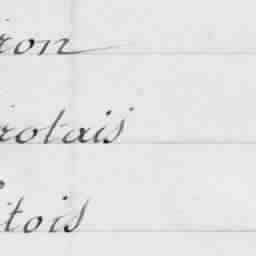 ron
rolais
itois